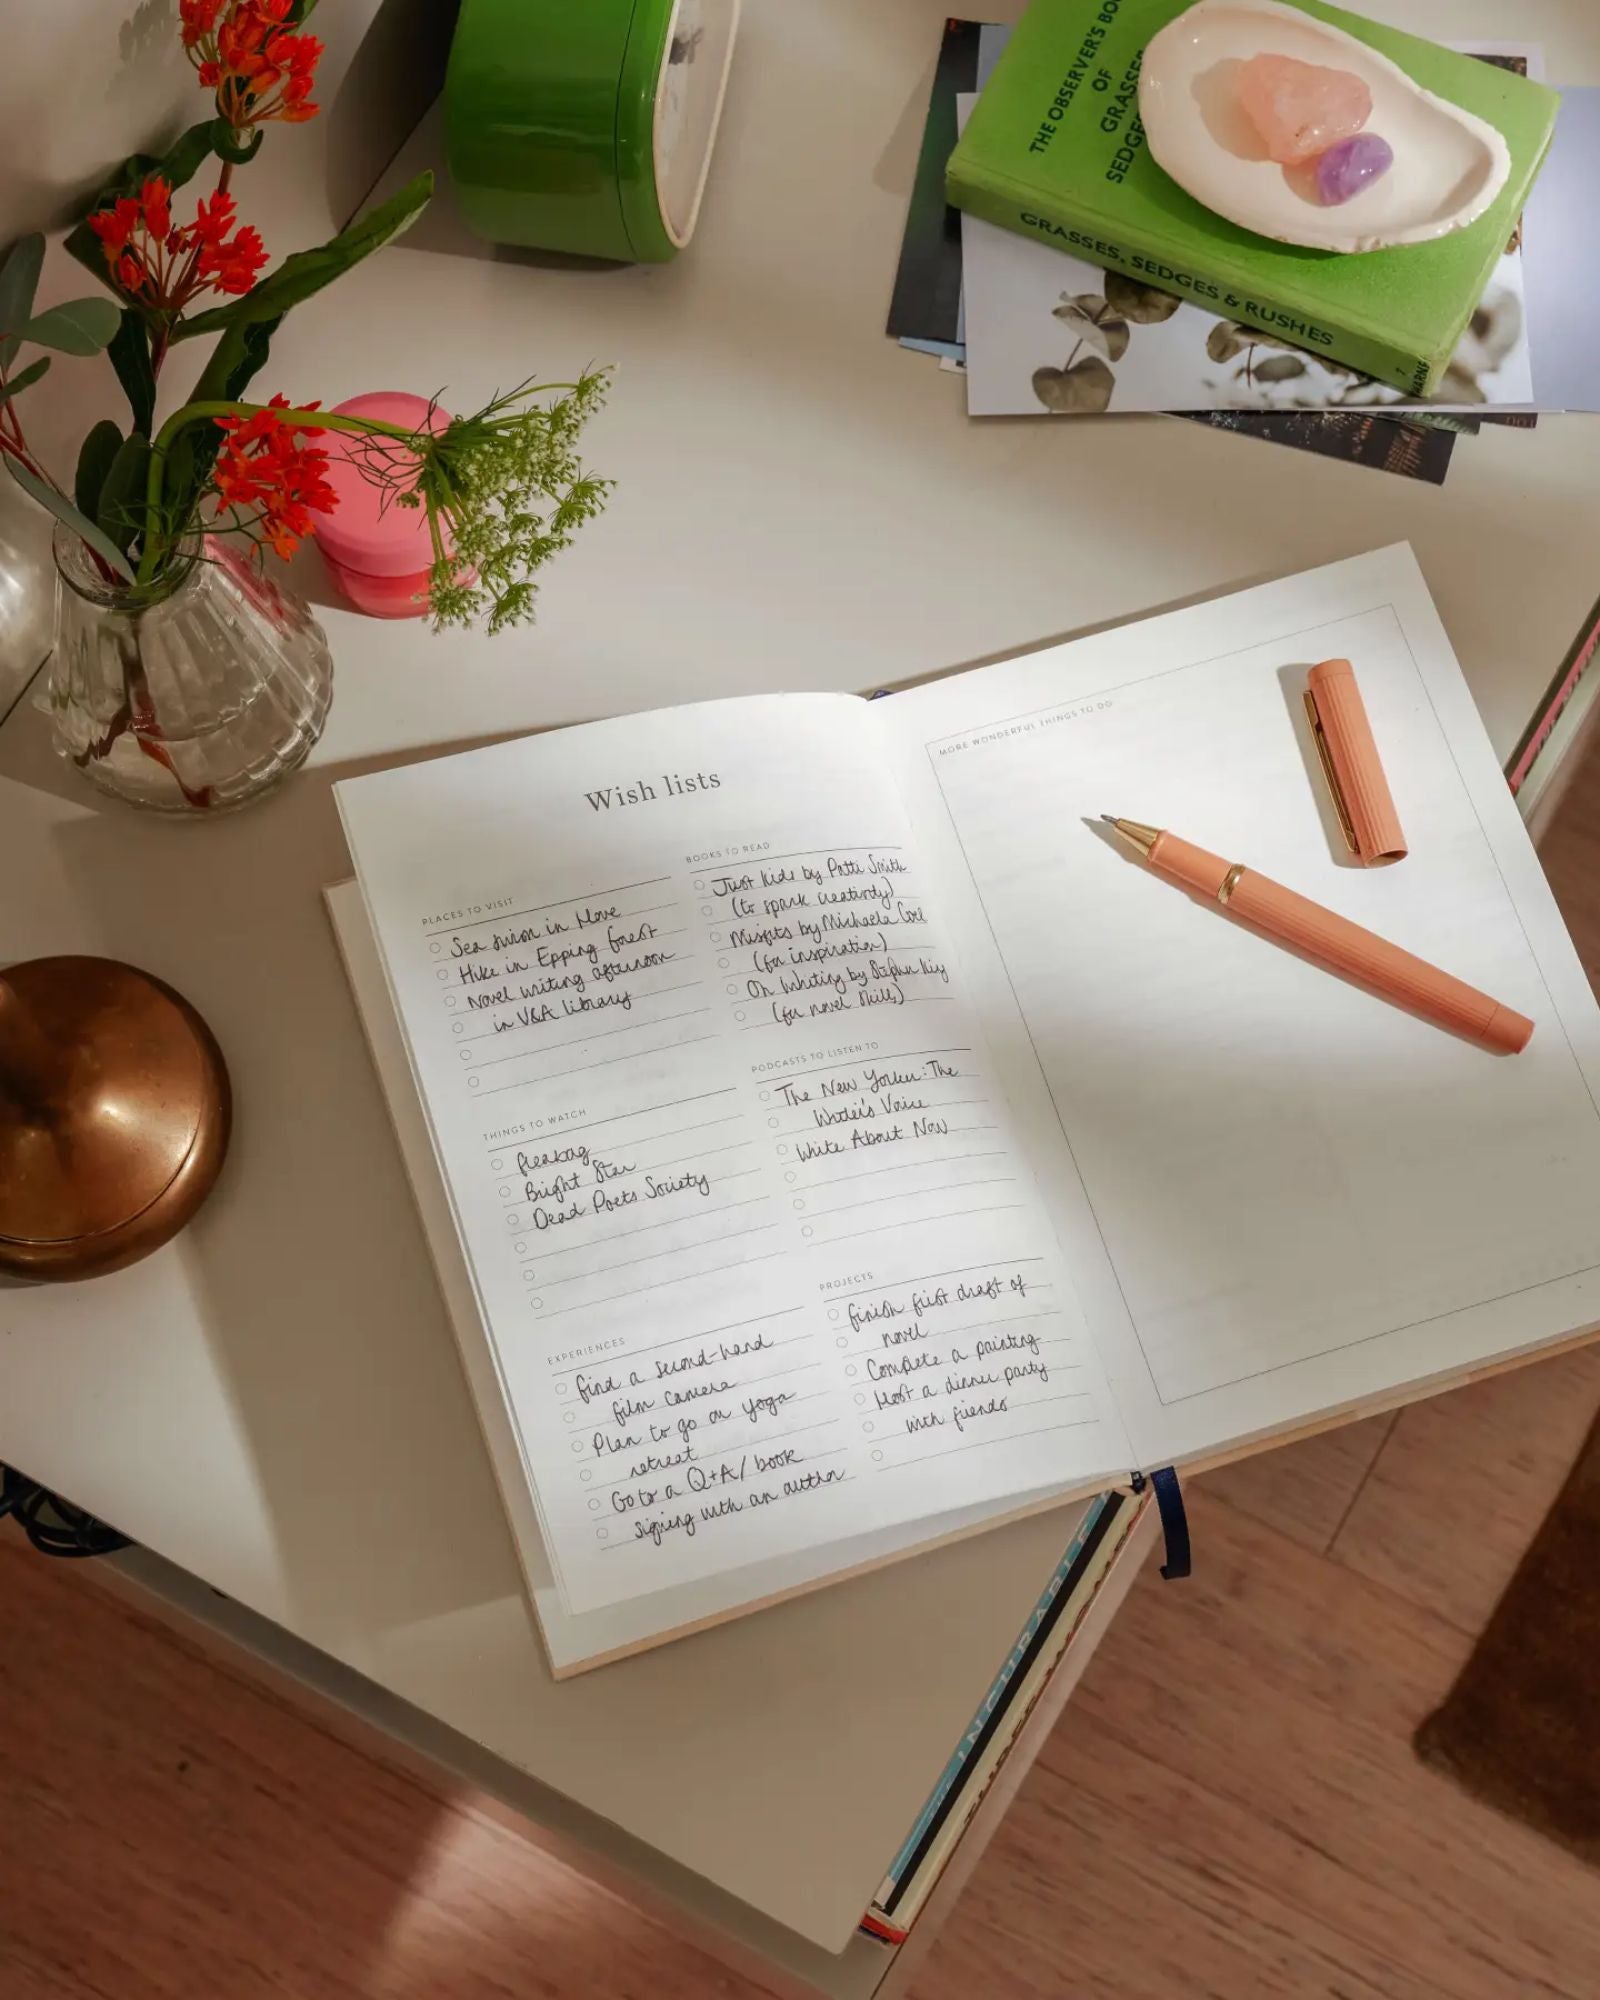 THE OBSERVER'S BOO
OF
GRASSES
SEDGE
GRASSES, SEDGES & RUSHES
WARNE
Wish lists
PLACES TO VISIT
Sea swim in Hove
Hike in Epping forest
Novel writing afternoon
in V&A library
BOOKS TO READ
Just Kids by Patti Smith
(to spark creativity)
Misfits by Michaela Coel
(for inspiration)
On Writing by Stephen King
(for novel skills)
THINGS TO WATCH
fleabag
Bright Star
Dead Poets Society
PODCASTS TO LISTEN TO
The New Yorker: The
Writer's Voice
Write About Now
EXPERIENCES
find a second-hand
film camera
Plan to go on yoga
retreat
Go to a Q+A/ book
signing with an author
PROJECTS
finish first draft of
novel
Complete a painting
Host a dinner party
with friends
MORE WONDERFUL THINGS TO DO